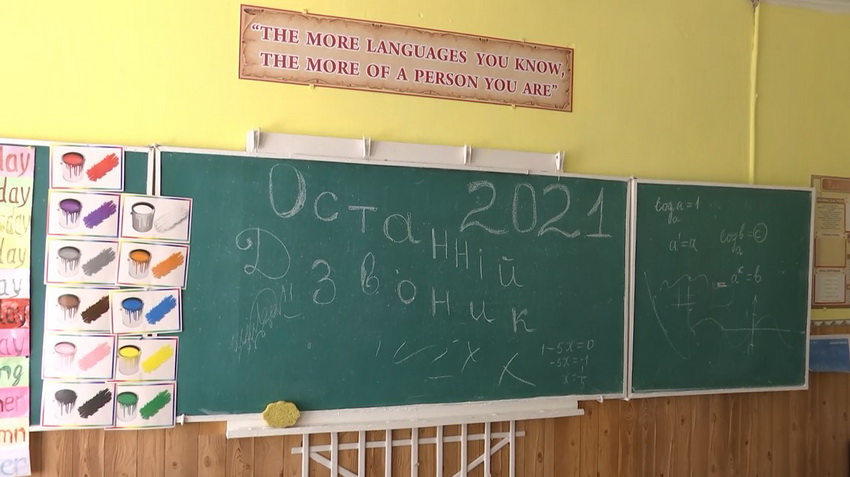 “THE MORE LANGUAGES YOU KNOW,
THE MORE OF A PERSON YOU ARE”
Останній 2021
Дзвоник
1-5x=0
-5x=-1
log_a a=1
a¹=a
log_a b=c
aᶜ=b
day
day
day
day